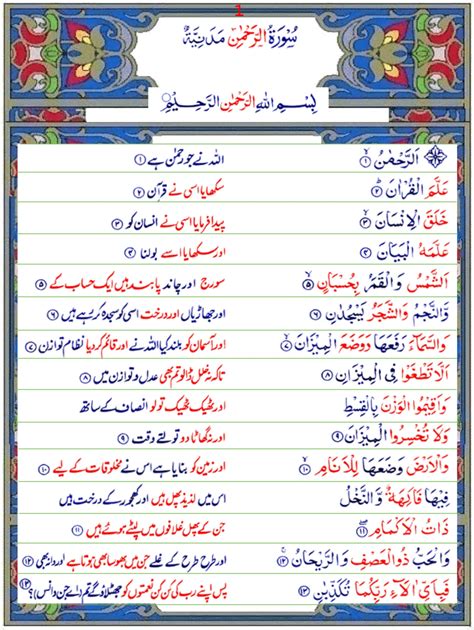 1
سُوْرَۃُ الرَّحْمٰنِ مَدَنِیَّۃٌ
بِسْمِ اللّٰہِ الرَّحْمٰنِ الرَّحِیْمِ
اَلرَّحْمٰنُ ۙ﴿۱﴾ اللہ نے جو رحمٰن ہے ﴿۱﴾
عَلَّمَ الْقُرْاٰنَ ؕ﴿۲﴾ سکھایا اسی نے قرآن ﴿۲﴾
خَلَقَ الْاِنْسَانَ ۙ﴿۳﴾ پیدا فرمایا اسی نے انسان کو ﴿۳﴾
عَلَّمَہُ الْبَیَانَ ﴿۴﴾ اور سکھایا اسے بولنا ﴿۴﴾
اَلشَّمْسُ وَالْقَمَرُ بِحُسْبَانٍ ۪﴿۵﴾ سورج اور چاند پابند ہیں ایک حساب کے ﴿۵﴾
وَّالنَّجْمُ وَالشَّجَرُ یَسْجُدٰنِ ﴿۶﴾ اور جھاڑیاں اور درخت اسی کو سجدہ کر رہے ہیں ﴿۶﴾
وَالسَّمَآءَ رَفَعَہَا وَوَضَعَ الْمِیْزَانَ ۙ﴿۷﴾ اور آسمان کو بلند کیا اللہ نے اور قائم کر دیا نظام توازن ﴿۷﴾
اَلَّا تَطْغَوْا فِی الْمِیْزَانِ ﴿۸﴾ تاکہ نہ خلل ڈالو تم بھی عدل و توازن میں ﴿۸﴾
وَاَقِیْمُوا الْوَزْنَ بِالْقِسْطِ اور ٹھیک ٹھیک تولو انصاف کے ساتھ
وَلَا تُخْسِرُوا الْمِیْزَانَ ﴿۹﴾ اور نہ گھاٹا دو تولتے وقت ﴿۹﴾
وَالْاَرْضَ وَضَعَہَا لِلْاَنَامِ ۙ﴿۱۰﴾ اور زمین کو بنایا ہے اس نے مخلوقات کے لیے ﴿۱۰﴾
فِیْہَا فَاکِہَۃٌ وَّالنَّخْلُ اس میں لذیذ پھل ہیں اور کھجور کے درخت ہیں
ذَاتُ الْاَکْمَامِ ﴿۱۱﴾ جن کے پھل غلافوں میں لپٹے ہوئے ہیں ﴿۱۱﴾
وَالْحَبُّ ذُوالْعَصْفِ وَالرَّیْحَانُ ﴿۱۲﴾ اور طرح طرح کے غلے جن میں بھوسا بھی ہوتا ہے اور دانہ بھی ﴿۱۲﴾
فَبِاَیِّ اٰلَآءِ رَبِّکُمَا تُکَذِّبٰنِ ﴿۱۳﴾ پس اپنے رب کی کن کن نعمتوں کو جھٹلاؤ گے تم (اے جن و انس)؟ ﴿۱۳﴾